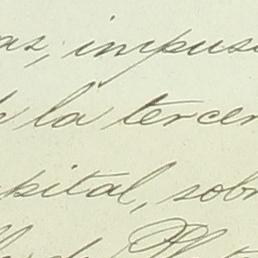 as, impus
la tercer
pital, sobr